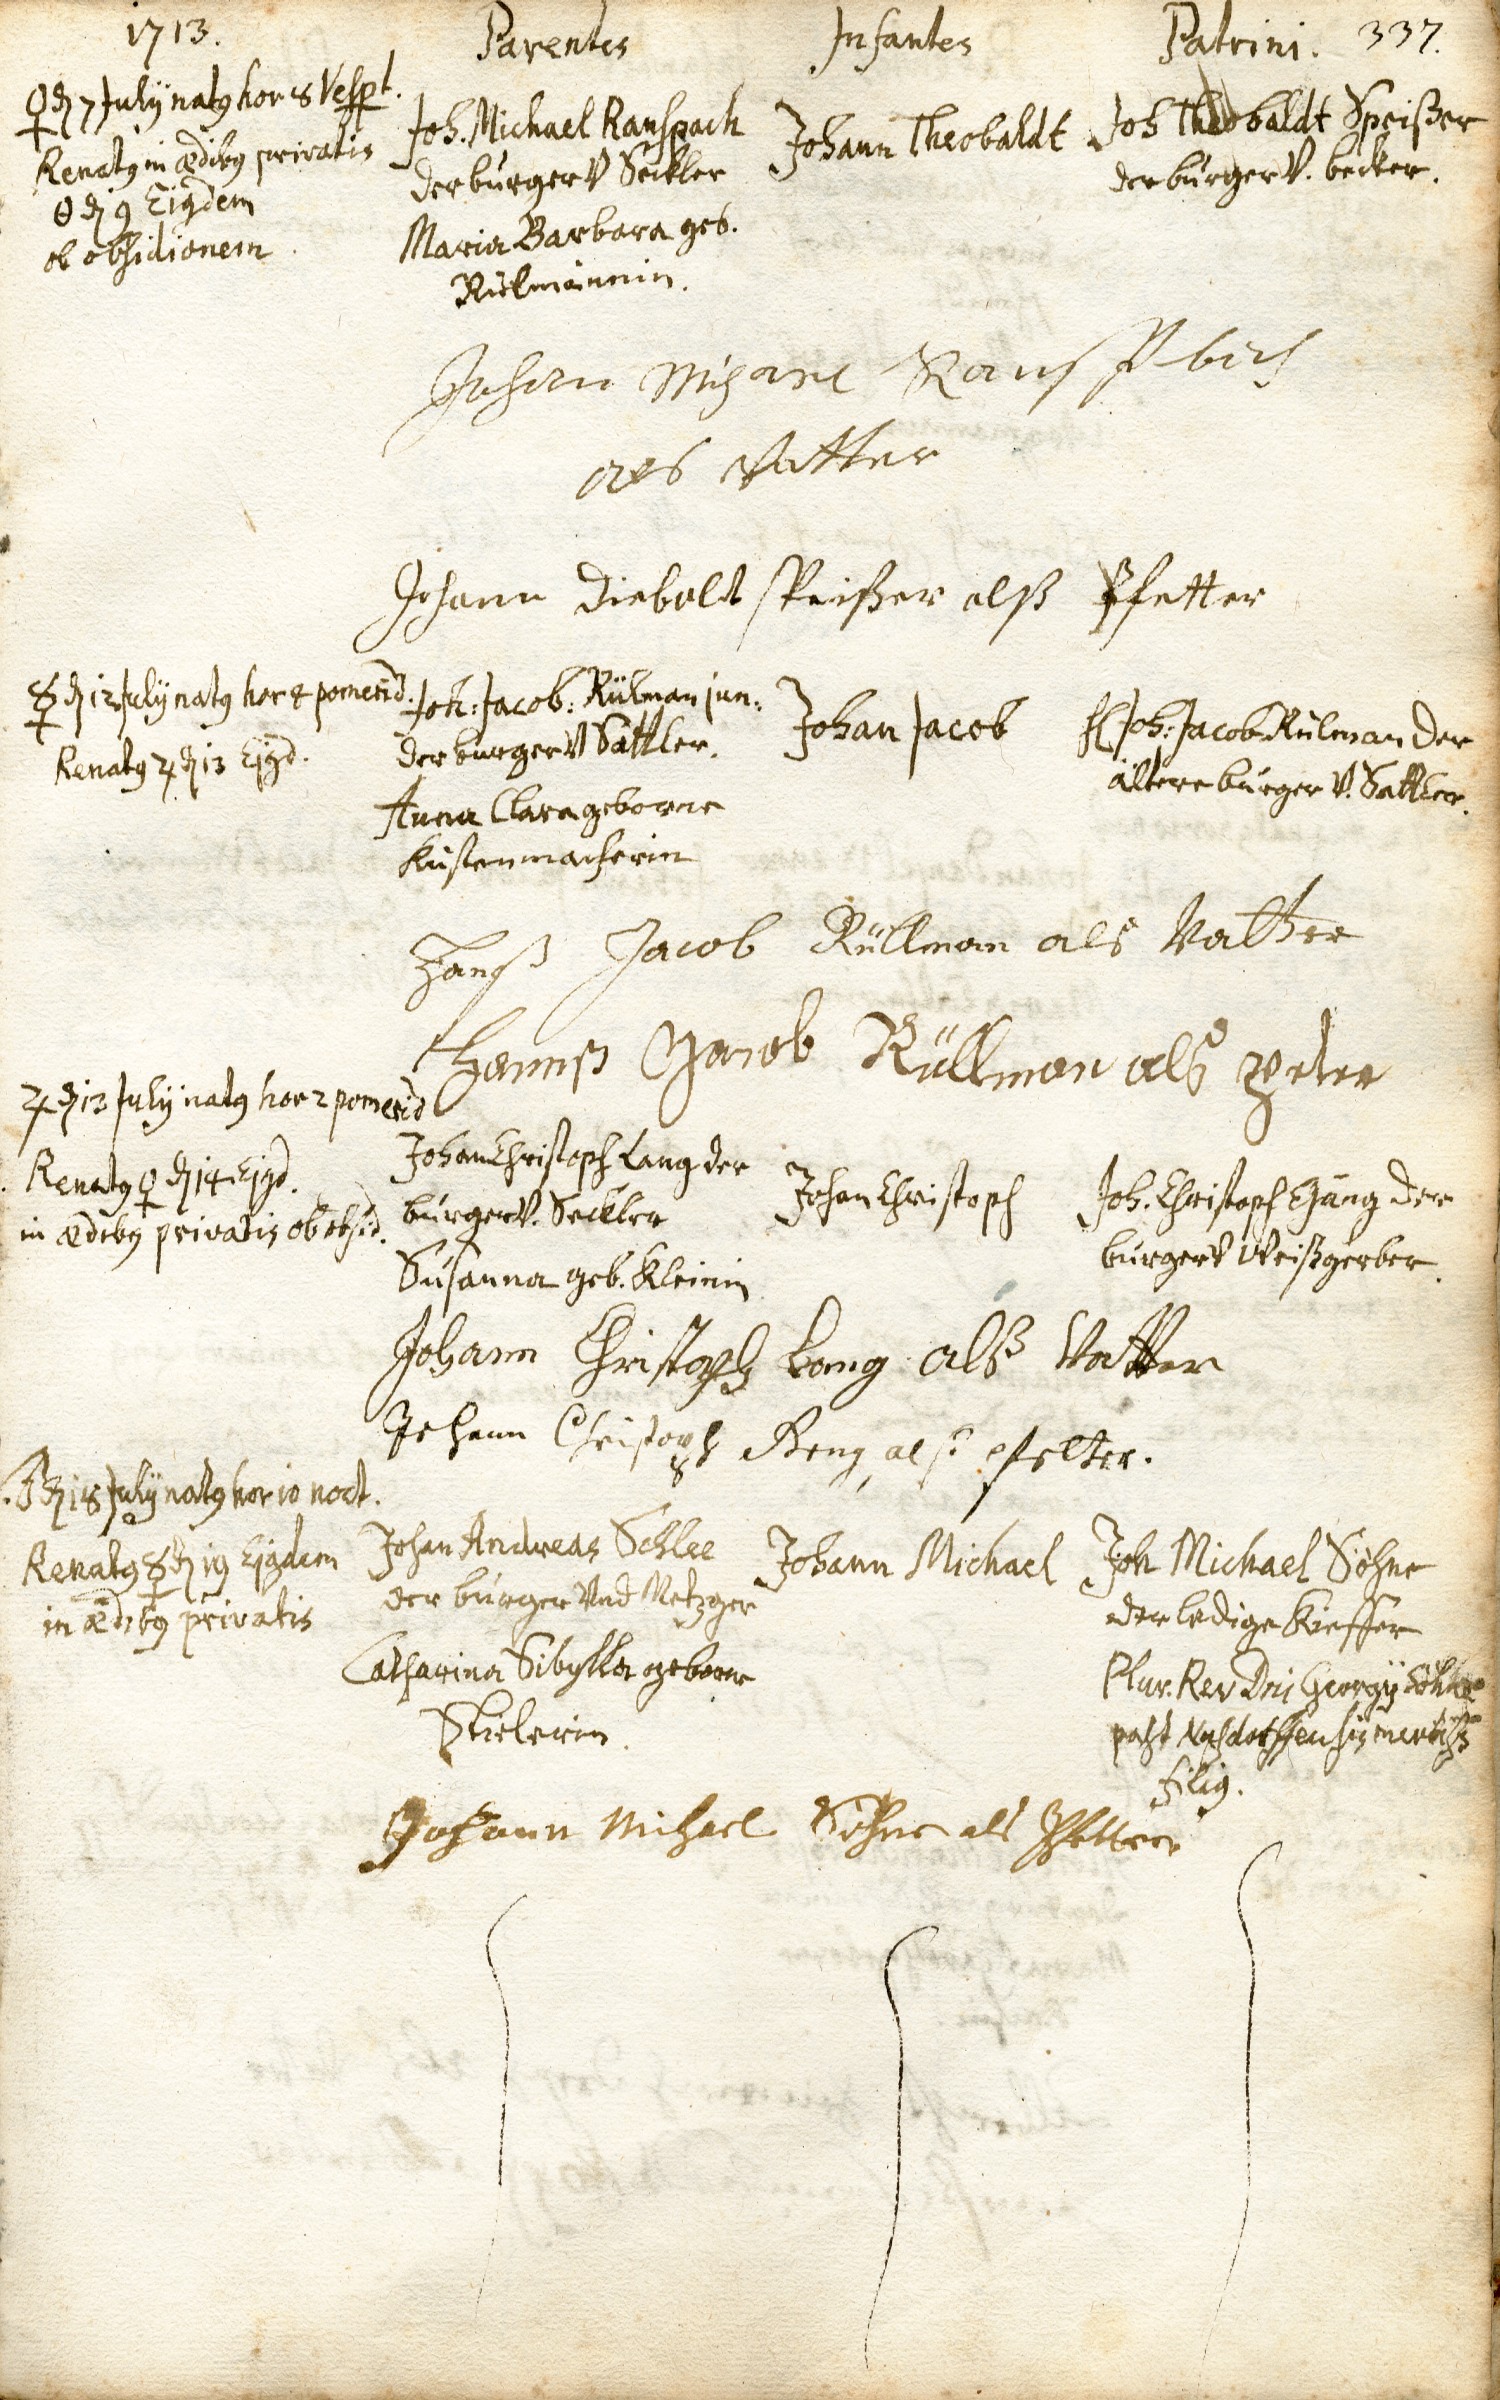 1713.
Parentes
Infantes
Patrini. 337.
♀ d 7 July natꝯ hor 8 Vespt.
Renatꝯ in ædibꝯ privatis
☉ d 9 Eiꝯdem
ob obsidionem
Joh. Michael Ranspach
der burger V Seckler
Maria Barbara geb.
Rülmännin.
Johann Theobaldt
Joh Theobaldt Speißer
der burger V. becker.
Johann Michael
als Vatter
Johann Diebolt Speißer alß Pfetter
☿ d 12 July natꝯ hor 4 pomerid.
Renatꝯ ♃ d 13 Ejꝯd.
Joh: Jacob: Rülman jun:
der burger V Sattler.
Anna Clara geborne
Küstenmacherin
Johan Jacob
H Joh: Jacob Rülman der
ältere burger V. Sattler.
Hanß Jacob Rüllman als Vatter
Hannß Jacob Rüllman als
♃ d 13 July natꝯ hor 2 pomerid
Renatꝯ ♀ d 14 Ejꝯd.
in ædibꝯ privatis ob obsid.
Johan Christoph Lang der
burger V. Seckler
Susanna geb. Kleinin
Johan Christoph
Joh. Christoph der
burger V Weißgerber.
Johann Christoph Lang alß Vatter
Johann Christoph alß pfetter.
♂ d 18 July natꝯ hor 10 noct.
Renatꝯ ☿ d 19 Ejꝯdem
in ædibꝯ privatis
Johan Andreas Schlee
der burger Vnd Metzger
Catharina Sibylla geborne
Johann Michael
Joh Michael Söhne
der ledige Kieffer
Plur. Rev Dni Georgÿ Söhne
filiꝯ.
Johann Michael Söhne als Pfetter